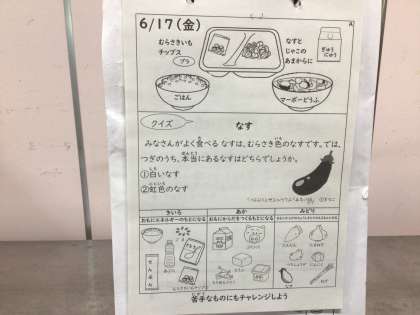 6/17(金)
A
むらさきいも
チップス
プラ
なすと
じゃこの
あまからに
ぎゅう
にゅう
ごはん
マーボーどうふ
クイズ
なす
みなさんがよく食べる なすは、むらさき色のなすです。では、
つぎのうち、本当にあるなすはどちらでしょうか。
①白いなす
②虹色のなす
きいろ
あか
みどり
おもにエネルギーのもとになる
おもにからだをつくるもとになる
あぶら
にんじん
にんにく
しょうが
ねぎ
苦手なものにもチャレンジしよう